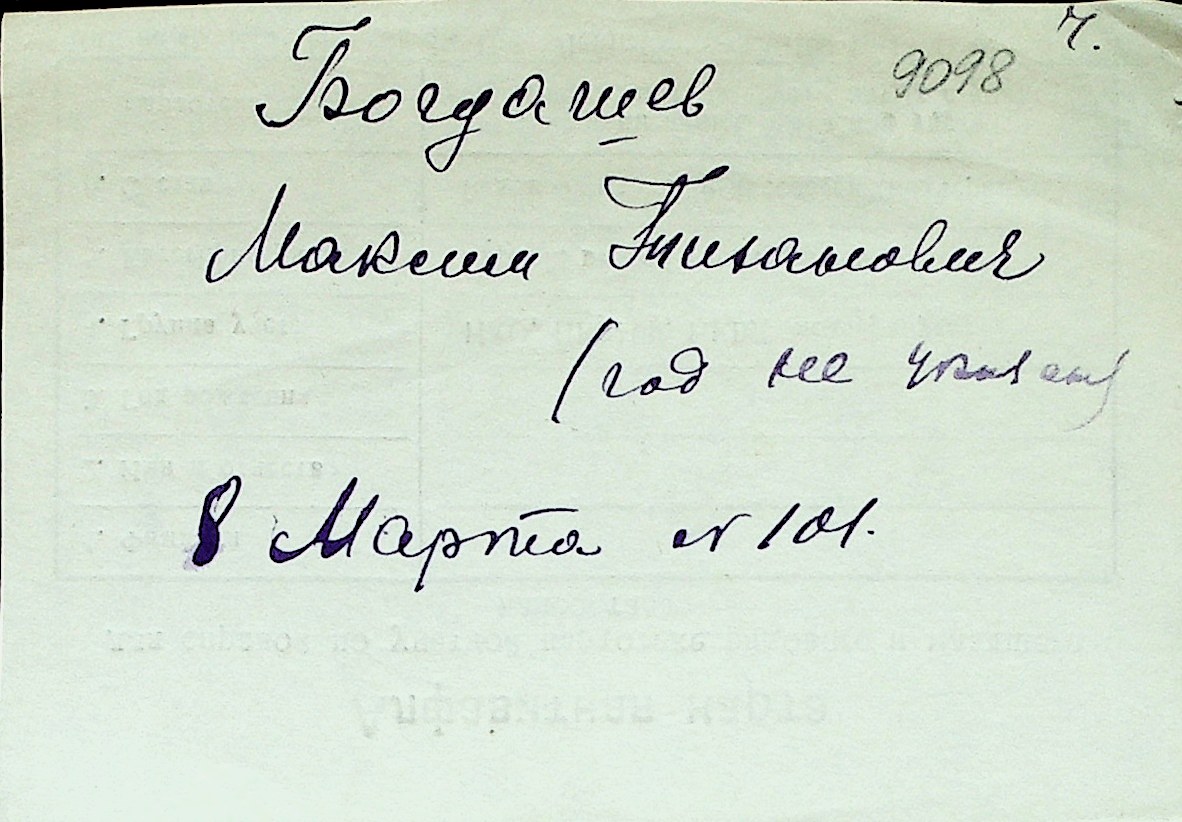 ч.
9098
Богдашев
Максим
(год не указан)
8 Марта № 101.